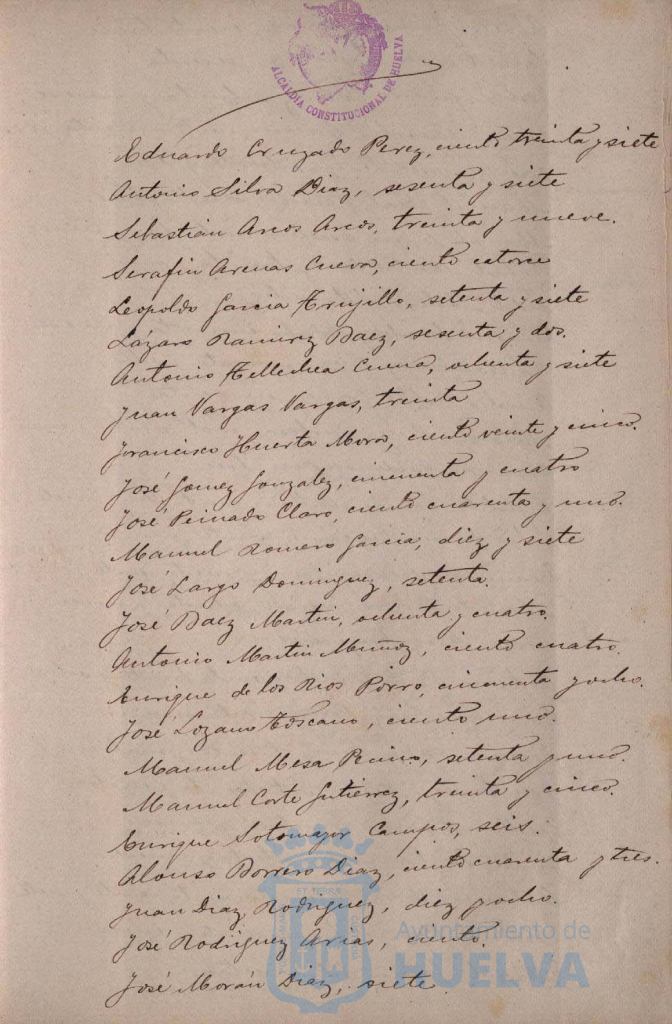 ALCALDIA CONSTITUCIONAL DE HUELVA
Eduardo Cruzado Perez, ciento treinta y siete
Antonio Silva Diaz, sesenta y siete
Sebastián Arcos Arcos, treinta y nueve.
Serafin Arenas Cueva, ciento catorce
Leopoldo Garcia Trujillo, setenta y siete
Lázaro Ramirez Baez, sesenta y dos.
Antonio Tellechea Cuena, ochenta y siete
Juan Vargas Vargas, treinta
Francisco Huerta Mora, ciento veinte y cinco.
José Gomez Gonzalez, cincuenta y cuatro
José Peinado Claro, ciento cuarenta y uno.
Manuel Romero Garcia, diez y siete
José Largo Dominguez, setenta.
José Baez Martin, ochenta y cuatro.
Antonio Martin Muñoz, ciento cuatro.
Enrique de los Rios Porro, cincuenta y ocho.
José Lozano Toscano, ciento uno.
Manuel Mesa setenta y uno.
Manuel Corte Gutiérrez, treinta y cinco.
Enrique Sotomayor Campos, seis.
Alonso Borrero Diaz, ciento cuarenta y tres.
Juan Diaz Rodriguez, diez y ocho.
José Rodriguez Arias, ciento.
José Morán Diaz, siete.
Ayuntamiento de
HUELVA